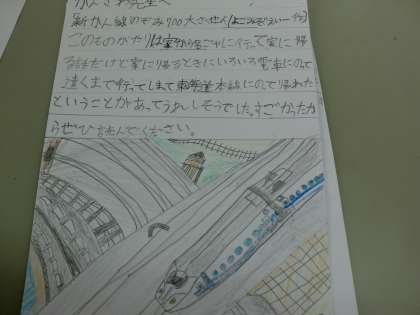 かんざわ先生へ
「新かん線のぞみ700大さくせん(よこみぞえいいち)
このものがたりは東京から名ごやに行って家に帰
る話だけど家に帰るときにいろいろ電車にのって
遠くまで行ってしまって東海道本線にのって帰れた
ということがあってうれしそうでした。すごかったか
らぜひ読んでください。